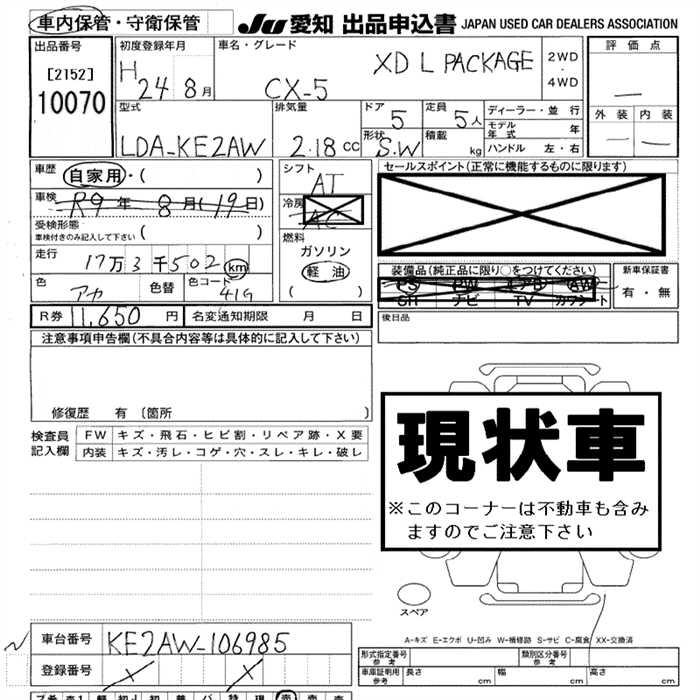 車内保管・守衛保管
JU 愛知 出品申込書 JAPAN USED CAR DEALERS ASSOCIATION
出品番号
[2152]
10070
初度登録年月
H 24 8月
車名・グレード
CX-5 XD L PACKAGE
2WD
・
4WD
評価点
—
外装 内装
— —
型式
LDA-KE2AW
排気量
2.18 cc
ドア
5
形状
S.W
定員
5人
積載
kg
ディーラー・並行
モデル年式 年
ハンドル 左・右
車歴
自家用・( )
車検
R9年 8月(19日)
受検形態
車検付きのみ記入して下さい ( )
走行
17万3千502 km
色
アカ
色替
色コード
41G
シフト
AT
冷房
AC
燃料
ガソリン
軽油
( )
セールスポイント(正常に機能するものに限ります)
装備品(純正品に限り○をつけてください)
PS PW エアB AW
SR ナビ TV カワシート
新車保証書
有・無
R券 11,650 円 名変通知期限 月 日
後日品
注意事項申告欄(不具合内容等は具体的に記入して下さい)
修復歴 有 〔箇所 〕
検査員
記入欄
FW キズ・飛石・ヒビ割・リペア跡・X要
内装 キズ・汚レ・コゲ・穴・スレ・キレ・破レ
現状車
※このコーナーは不動車も含み
ますのでご注意下さい
スペア
A-キズ E-エクボ U-凹み W-補修跡 S-サビ C-腐食 XX-交換済
車台番号 KE2AW-106985
登録番号
形式指定番号
参考
類別区分番号
参考
車庫証明用
参考
長さ cm 幅 cm 高さ cm